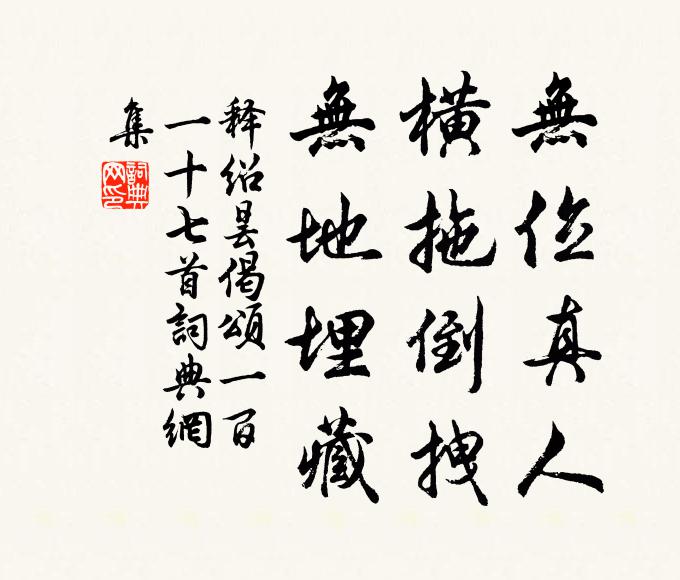 無位真人
橫拖倒拽
無地埋藏
释紹曇偈頌一百
一十七首詞典網
集
詞典
网印